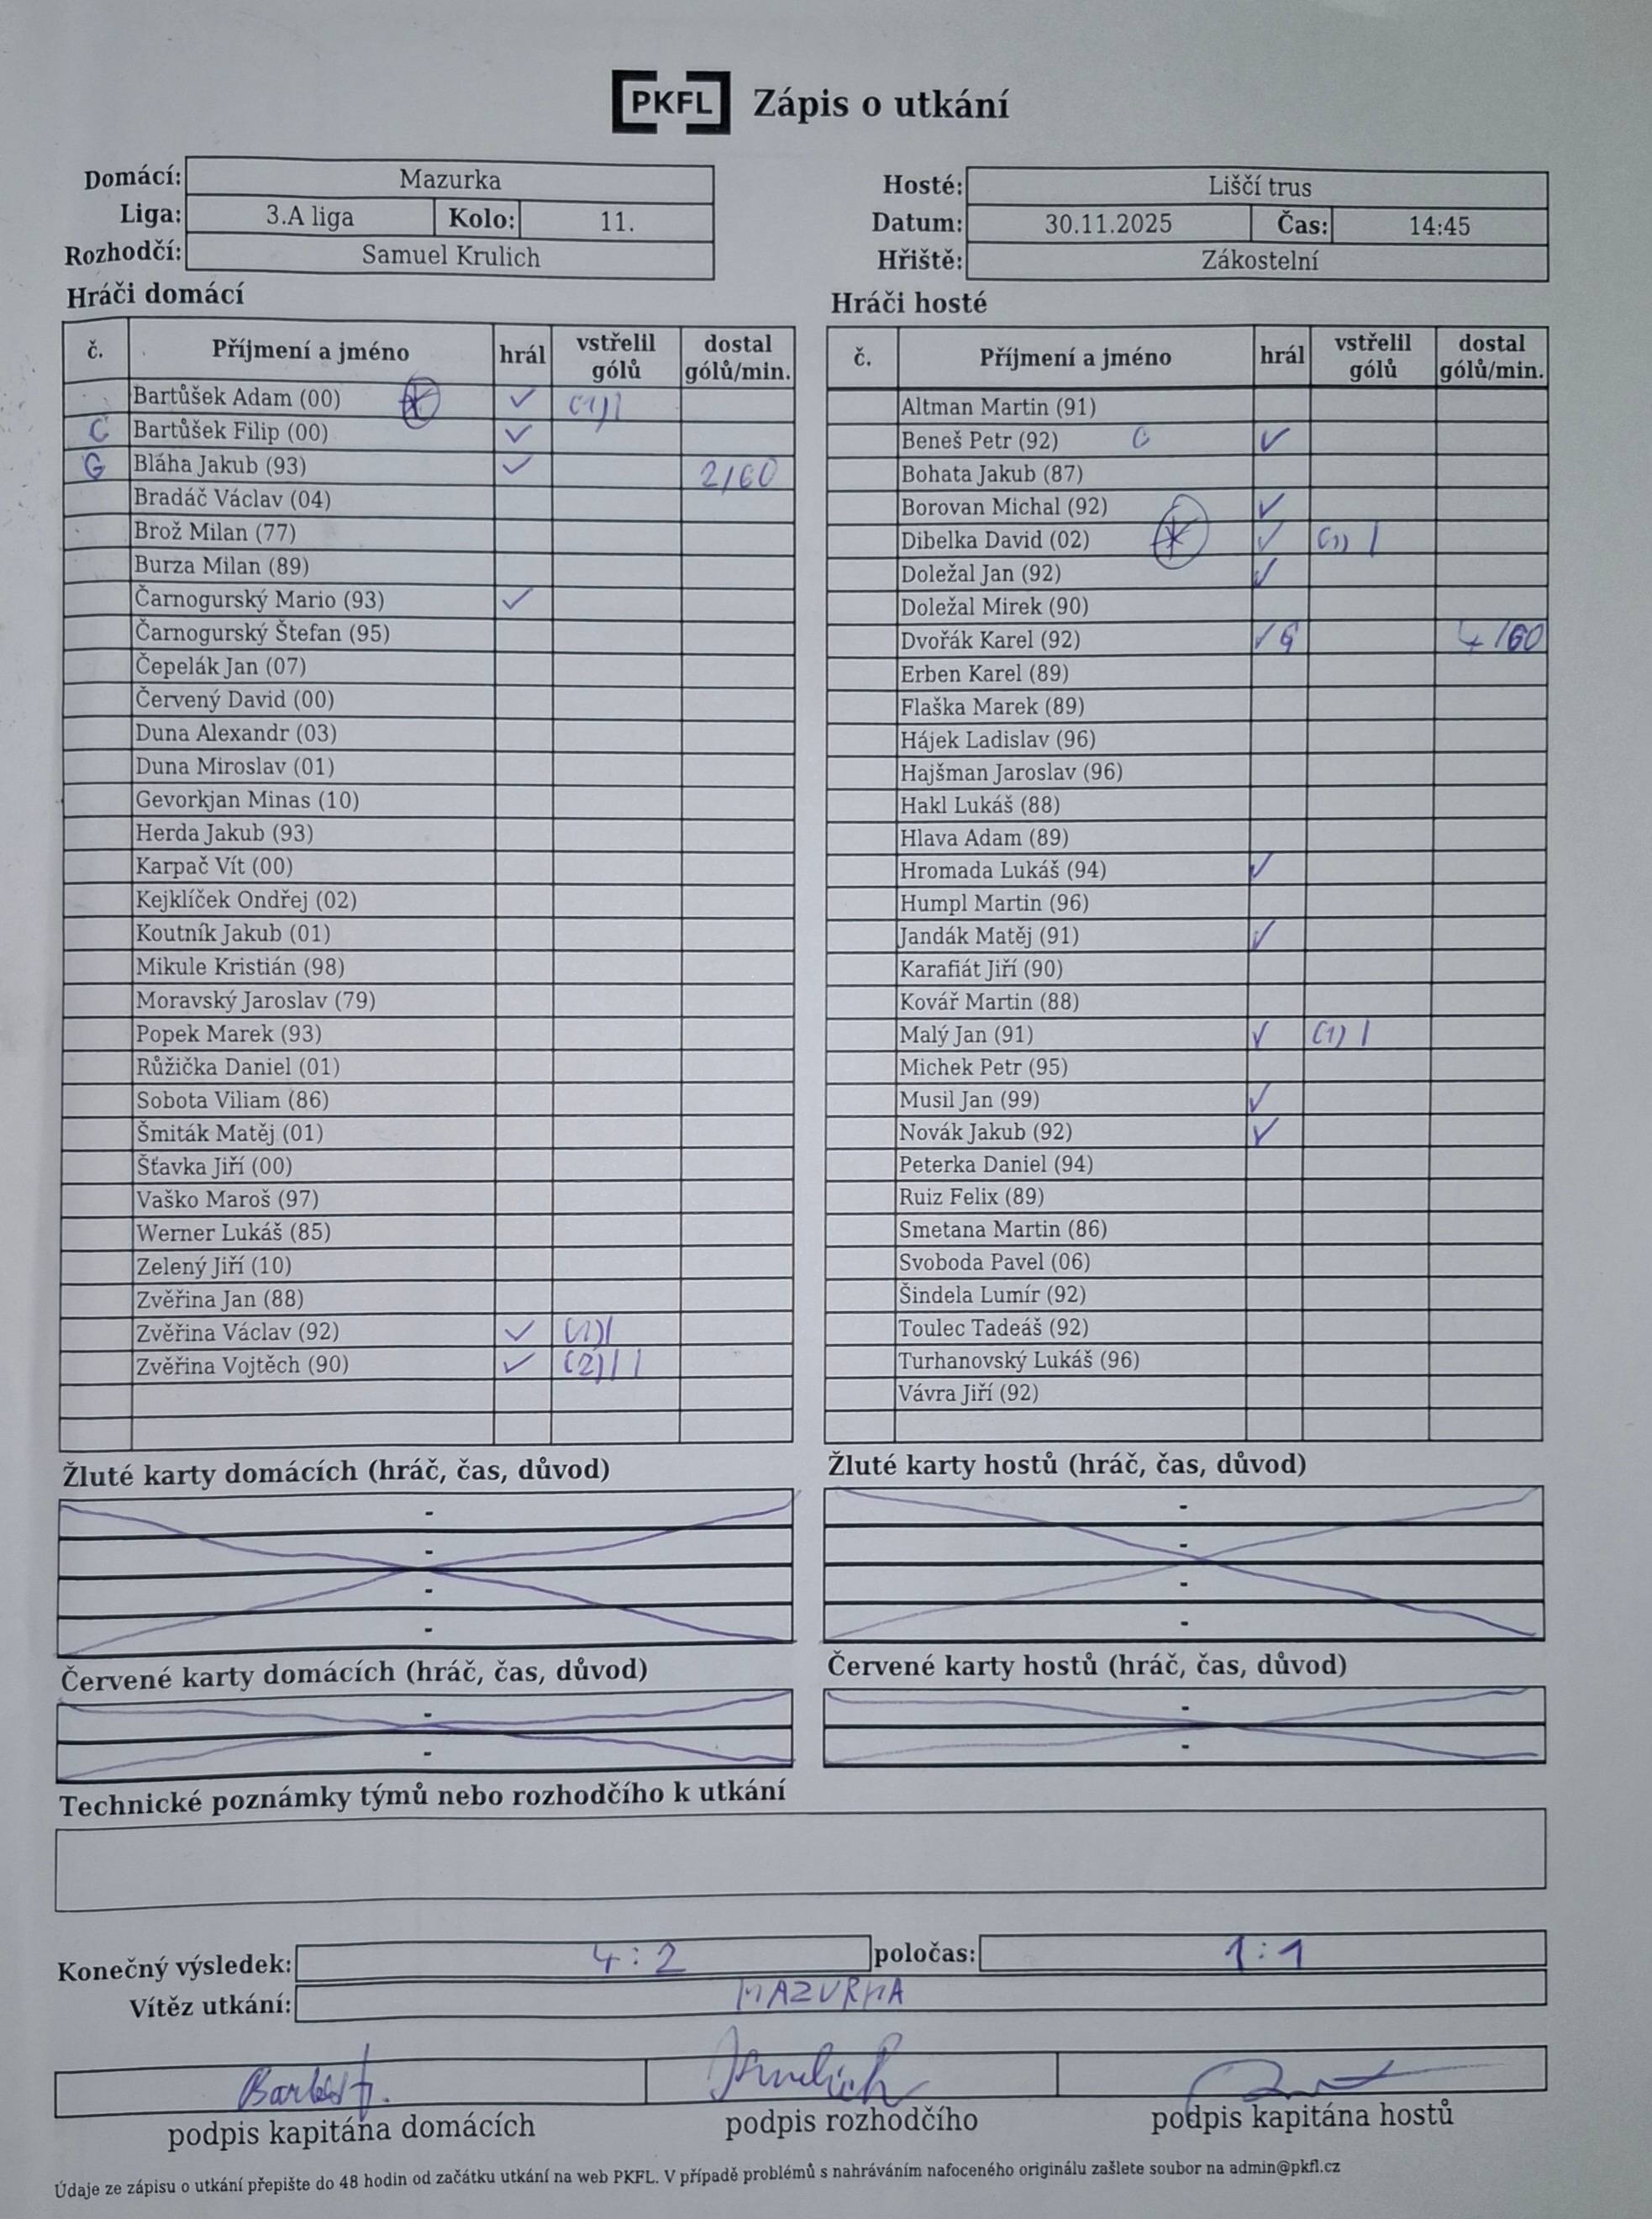 PKFL Zápis o utkání
Domácí: Mazurka
Liga: 3.A liga Kolo: 11.
Rozhodčí: Samuel Krulich
Hosté: Liščí trus
Datum: 30.11.2025 Čas: 14:45
Hřiště: Zákostelní
Hráči domácí
č. Příjmení a jméno hrál vstřelil gólů dostal gólů/min.
Bartůšek Adam (00) ✓ (1) |
C Bartůšek Filip (00) ✓
G Bláha Jakub (93) ✓ 2/60
Bradáč Václav (04)
Brož Milan (77)
Burza Milan (89)
Čarnogurský Mario (93) ✓
Čarnogurský Štefan (95)
Čepelák Jan (07)
Červený David (00)
Duna Alexandr (03)
Duna Miroslav (01)
Gevorkjan Minas (10)
Herda Jakub (93)
Karpač Vít (00)
Kejklíček Ondřej (02)
Koutník Jakub (01)
Mikule Kristián (98)
Moravský Jaroslav (79)
Popek Marek (93)
Růžička Daniel (01)
Sobota Viliam (86)
Šmiták Matěj (01)
Šťavka Jiří (00)
Vaško Maroš (97)
Werner Lukáš (85)
Zelený Jiří (10)
Zvěřina Jan (88)
Zvěřina Václav (92) ✓ (1) |
Zvěřina Vojtěch (90) ✓ (2) | |
Hráči hosté
č. Příjmení a jméno hrál vstřelil gólů dostal gólů/min.
Altman Martin (91)
Beneš Petr (92) C ✓
Bohata Jakub (87)
Borovan Michal (92) ✓
Dibelka David (02) ✓ (1) |
Doležal Jan (92) ✓
Doležal Mirek (90)
Dvořák Karel (92) ✓ G 4/60
Erben Karel (89)
Flaška Marek (89)
Hájek Ladislav (96)
Hajšman Jaroslav (96)
Hakl Lukáš (88)
Hlava Adam (89)
Hromada Lukáš (94) ✓
Humpl Martin (96)
Jandák Matěj (91) ✓
Karafiát Jiří (90)
Kovář Martin (88)
Malý Jan (91) ✓ (1) |
Michek Petr (95)
Musil Jan (99) ✓
Novák Jakub (92) ✓
Peterka Daniel (94)
Ruiz Felix (89)
Smetana Martin (86)
Svoboda Pavel (06)
Šindela Lumír (92)
Toulec Tadeáš (92)
Turhanovský Lukáš (96)
Vávra Jiří (92)
Žluté karty domácích (hráč, čas, důvod)
-
-
-
-
Žluté karty hostů (hráč, čas, důvod)
-
-
-
-
Červené karty domácích (hráč, čas, důvod)
-
-
Červené karty hostů (hráč, čas, důvod)
-
-
Technické poznámky týmů nebo rozhodčího k utkání
Konečný výsledek: 4:2 poločas: 1:1
Vítěz utkání: MAZURKA
podpis kapitána domácích podpis rozhodčího podpis kapitána hostů
Údaje ze zápisu o utkání přepište do 48 hodin od začátku utkání na web PKFL. V případě problémů s nahráváním nafoceného originálu zašlete soubor na admin@pkfl.cz